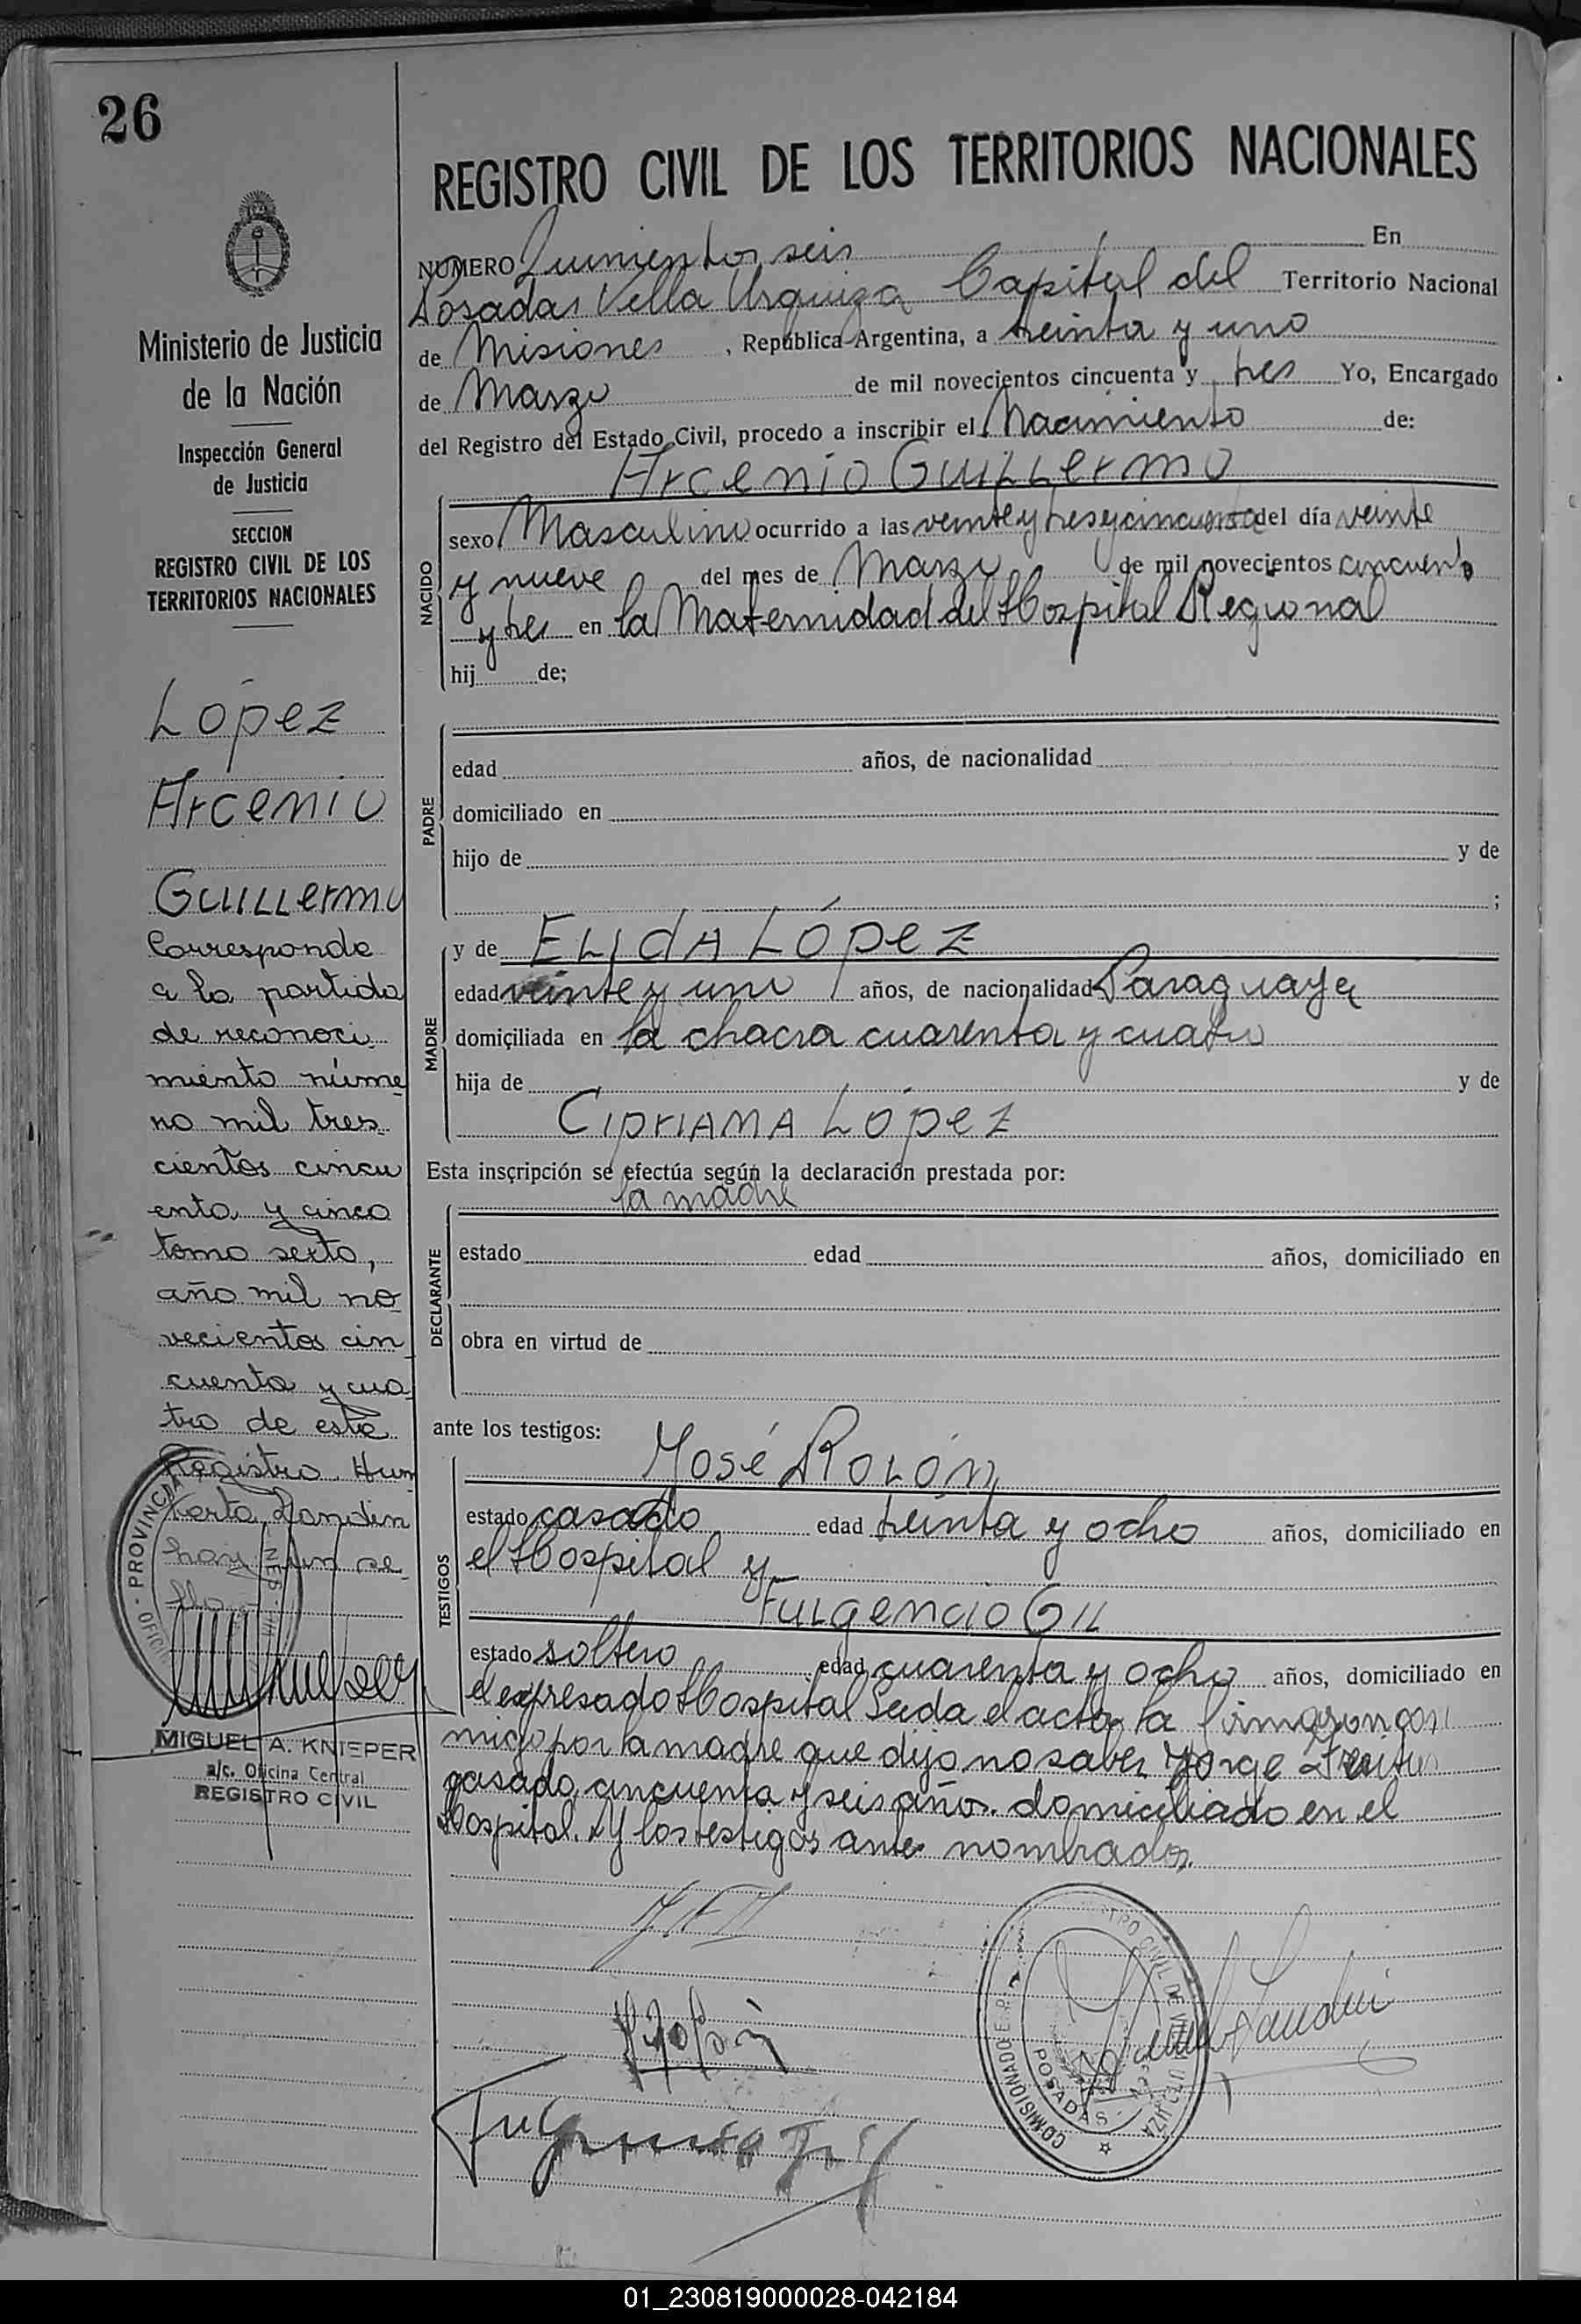 26
REGISTRO CIVIL DE LOS TERRITORIOS NACIONALES
Ministerio de Justicia
de la Nación
Inspección General
de Justicia
SECCION
REGISTRO CIVIL DE LOS
TERRITORIOS NACIONALES
López
Arcenio
Guillermo
Corresponde
a la partida
de reconoci
miento núme
ro mil tres
cientos cincu
enta y cinco
tomo sexto,
año mil no
vecientos cin
cuenta y cua
tro de este
Registro. Hum
berto Landin
hay un se
llo
PROVINCIA
OFICIN
MIGUEL A. KNIEPER
a/c. Oficina Central
REGISTRO CIVIL
NUMERO Quinientos seis En
Posadas Villa Urquiza Capital del Territorio Nacional
de Misiones, República Argentina, a treinta y uno
de Marzo de mil novecientos cincuenta y tres Yo, Encargado
del Registro del Estado Civil, procedo a inscribir el Nacimiento de:
Arcenio Guillermo
NACIDO
sexo Masculino ocurrido a las veinte y tres y cincuenta del día veinte
y nueve del mes de Marzo de mil novecientos cincuenta
y tres en la Maternidad del Hospital Regional
hij de;
PADRE
edad años, de nacionalidad
domiciliado en
hijo de y de
;
MADRE
y de Elida López
edad veinte y uno años, de nacionalidad Paraguaya
domiciliada en la chacra cuarenta y cuatro
hija de y de
Cipriana López
Esta inscripción se efectúa según la declaración prestada por:
la madre
DECLARANTE
estado edad años, domiciliado en
obra en virtud de
ante los testigos:
TESTIGOS
José Rolón
estado casado edad treinta y ocho años, domiciliado en
el Hospital y
Fulgencio Gil
estado soltero edad cuarenta y ocho años, domiciliado en
el expresado Hospital Leida el acta la firmaron con
migo por la madre que dijo no saber Jorge
casado, cincuenta y seis años domiciliado en el
Hospital. Y los testigos antes nombrados.
COMISIONADO E.R.
POSADAS
Fulgencio Gil
01_230819000028-042184